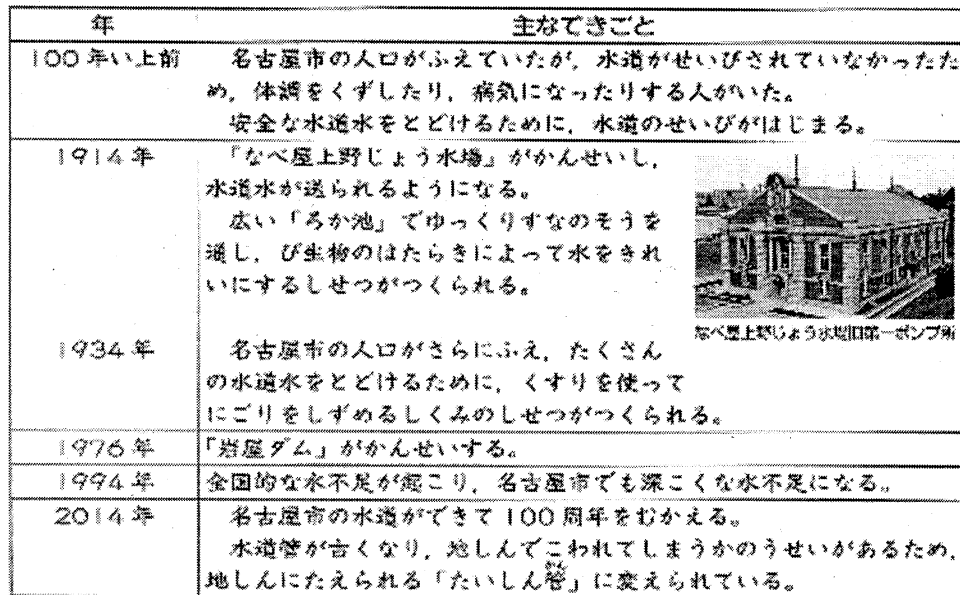 年　主なできごと
100年い上前　名古屋市の人口がふえていたが，水道がせいびされていなかったた
め，体調をくずしたり，病気になったりする人がいた。
安全な水道水をとどけるために，水道のせいびがはじまる。
1914年　「なべ屋上野じょう水場」がかんせいし，
水道水が送られるようになる。
広い「ろか池」でゆっくりすなのそうを
通し，び生物のはたらきによって水をきれ
いにするしせつがつくられる。
なべ屋上野じょう水場旧第一ポンプ所
1934年　名古屋市の人口がさらにふえ，たくさん
の水道水をとどけるために，くすりを使って
にごりをしずめるしくみのしせつがつくられる。
1976年　「岩屋ダム」がかんせいする。
1994年　全国的な水不足が起こり，名古屋市でも深こくな水不足になる。
2014年　名古屋市の水道ができて100周年をむかえる。
水道管が古くなり，地しんでこわれてしまうかのうせいがあるため，
地しんにたえられる「たいしん管」に変えられている。